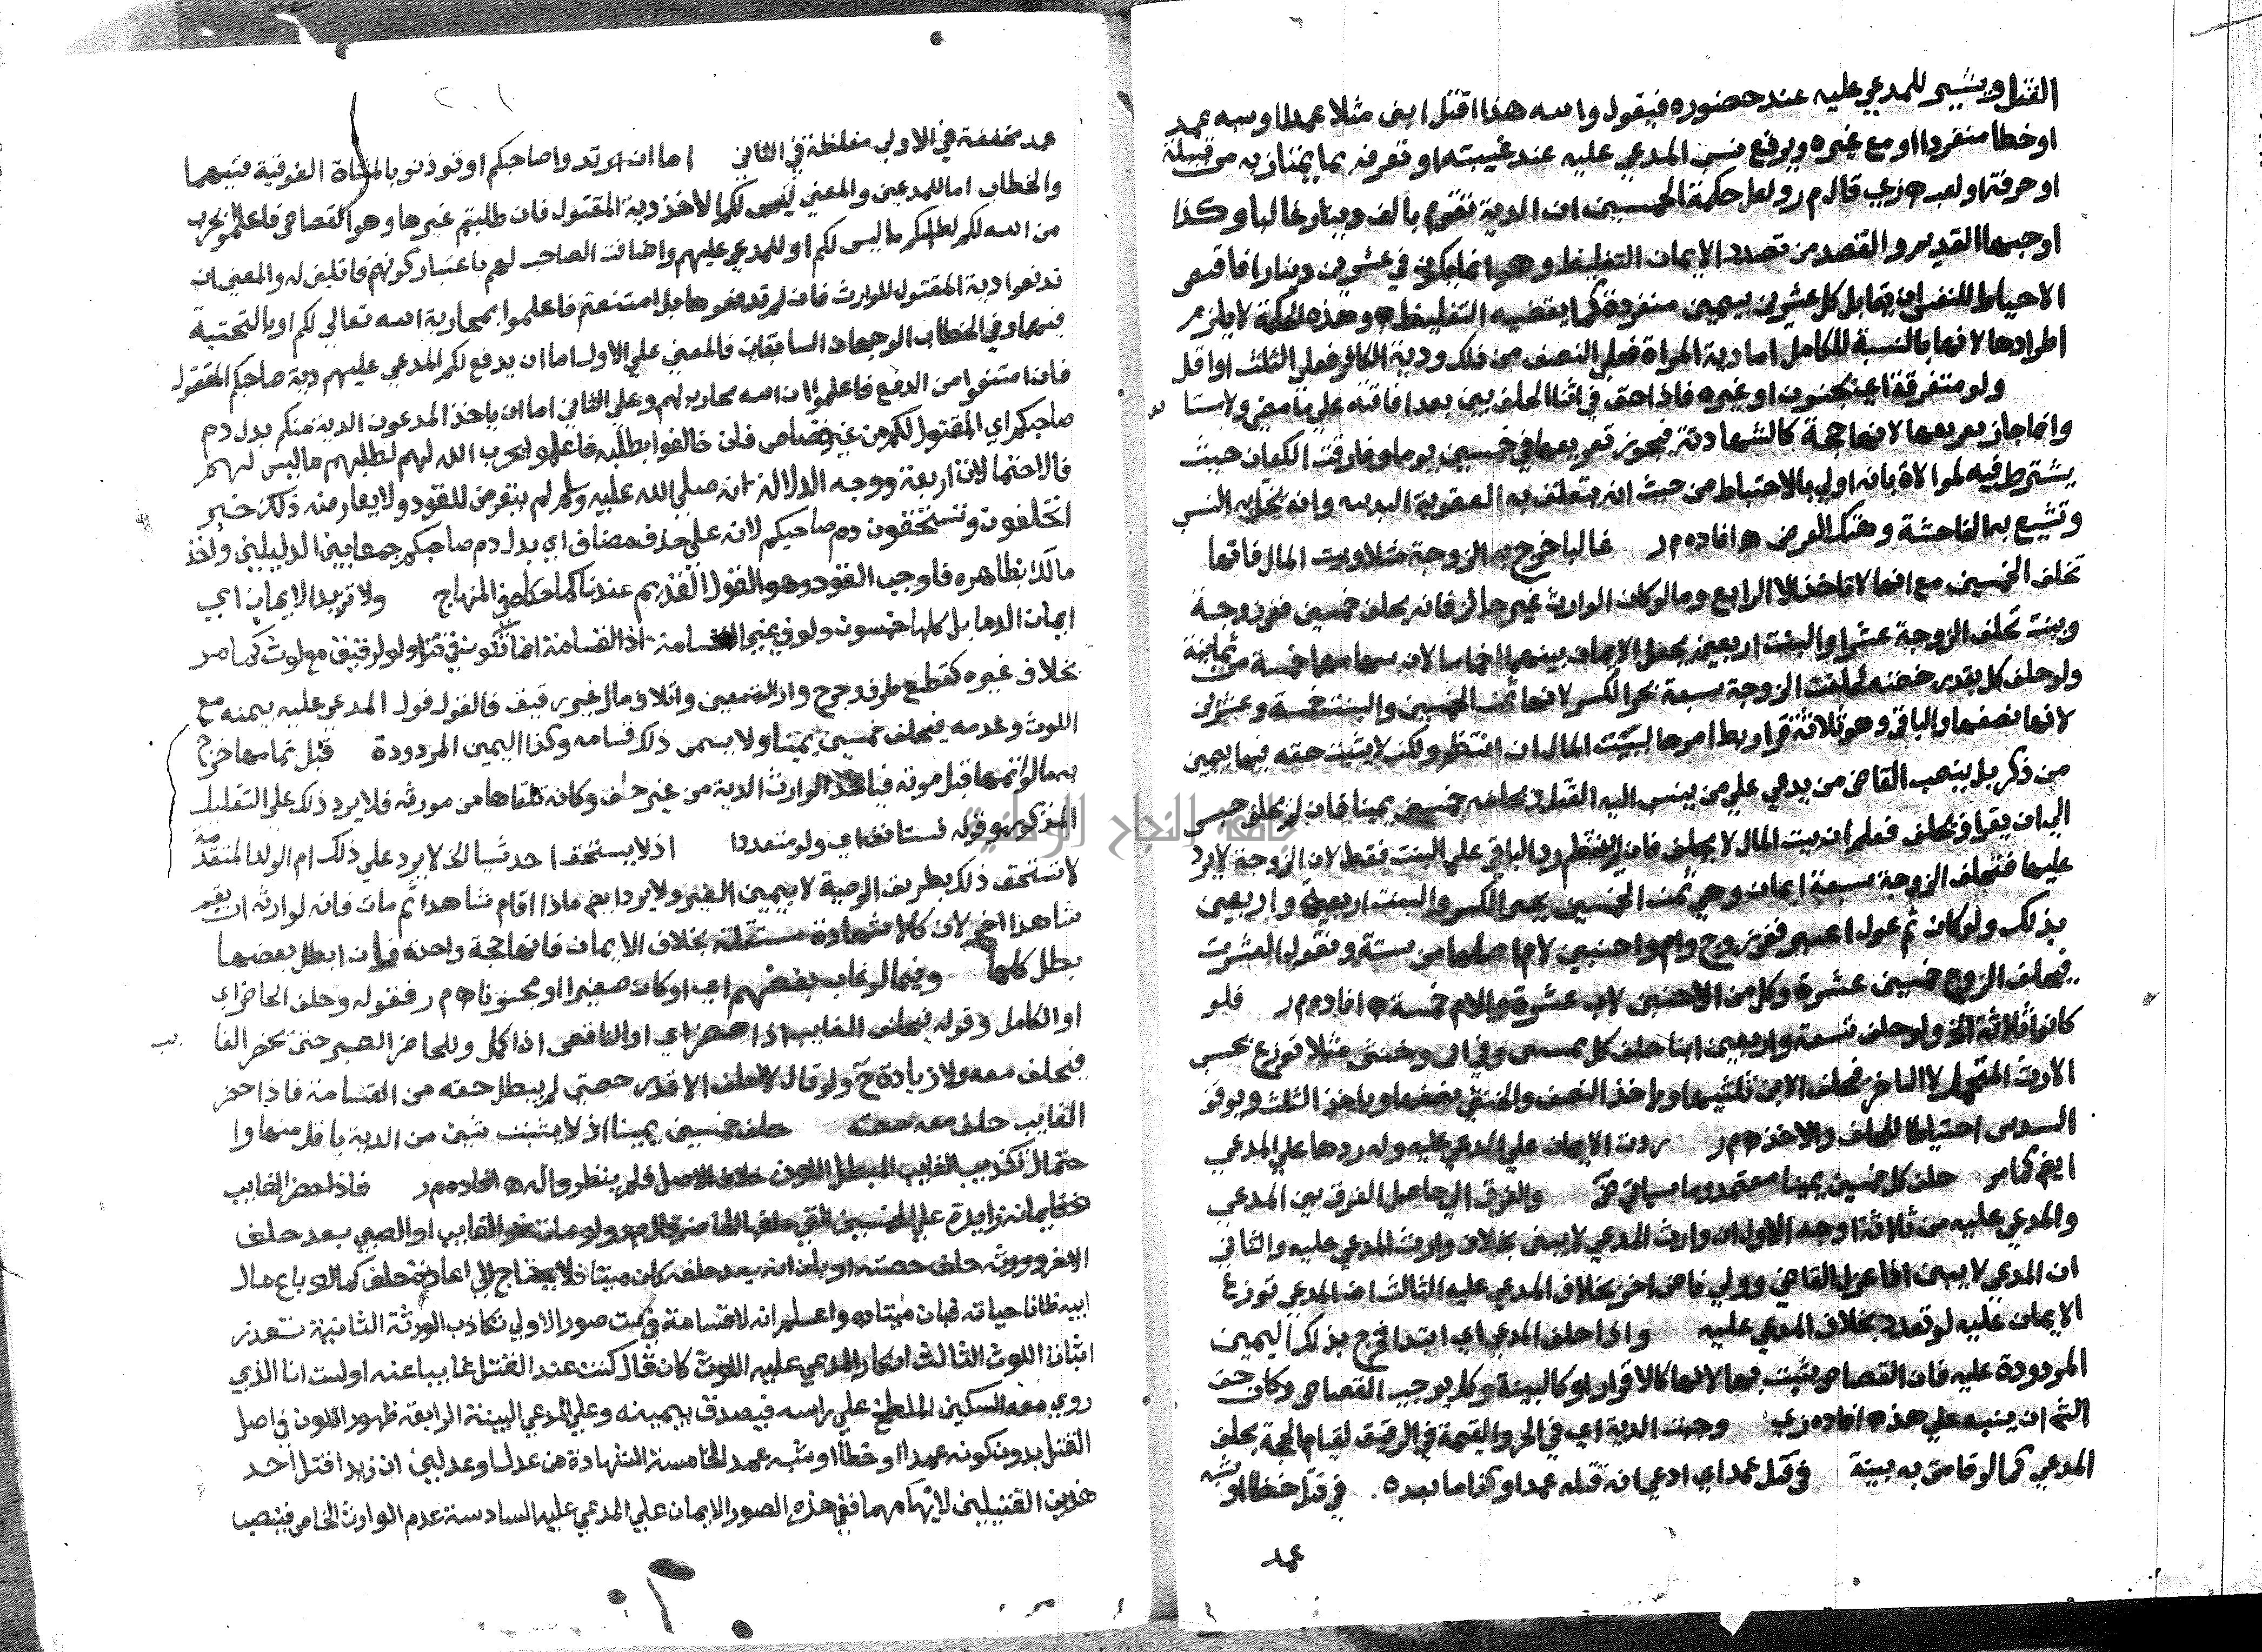 القتل ويشير للمدعي عليه عند حضوره فيقول والله هذا قتل ابني مثلا عمدا او شبه عمد
او خطا منفردا او مع غيره ويرفع نسب المدعي عليه عند غيبته او تعرفه بما يمتاز به من قبيلة
او حرفة او لقب ه زي قال م ر ولعل حكمة الخمسين ان الدية تقوم بالف دينار غالبا وكذا
اوجبها القديم والقصد من تعدد الايمان التغليظ وهو انما يكون في عشرين دينارا فاقتضى
الاحياط للنفس ان يقابل كل عشرين بيمين منفردة كما يقتضيه التغليظ ه وهذه الحكمة لا يلزم
اطرادها لانها بالنسبة للكامل اما دية المراة فعلي النصف من ذلك ودية الكافر فعلي الثلث او اقل
ولو متفرقة اي بجنون او غيره فاذا حق في اثنا الحلف بني بعد افاقته علي ما مضي ولا يستا
وانما جاز تفريقها لانها حجة كالشهادة فيجوز تفريقها في خمسين يوما وفارقت اللعان حيث
يشترط فيه الموالاة بانه اولي بالاحتياط من حيث انه يتعلق به العقوبة البدنيه وانه يختل به النسب
وتشيع به الفاحشة وهتك العرض ه افاده م ر غالبا خرج به الزوجة مثلا وبيت المال فانها
تحلف الخمسين مع انها لا تاخذ الا الربع وما لو كان الوارث غير حائز فانه يحلف خمسين ففي زوجة
وبنت تحلف الزوجة عشرا والبنت اربعين بجعل الايمان بينهما اخماسا لان سهامهما خمسة من ثمانية
ولو حلف كل بقدر حصته لحلفت الزوجة سبعة بجبر الكسر لانها ثمن الخمسين والبنت خمسة وعشرين
لانها نصفها والباقي وهو ثلاثة قراريط امرها لبيت المال ان انتظم ولكن لا يثبت حقه فيها بيمين
من ذكر بل ينصب القاضي من يدعي علي من ينسب اليه القتل ويحلفه خمسين يمينا فان لم يحلف حبس
الي ان يقر او يحلف فعلم ان بيت المال لا يحلف فان لم ينتظم رد الباقي علي البنت فقط لان الزوجة لا يرد
عليها فتحلف الزوجة سبعة ايمان وهي ثمن الخمسين بجبر الكسر والبنت اربعة واربعين
بذلك ولو كان ثم عول اعتبر ففي زوج وام واختين لام اصلها من ستة وتعول العشرة
فيحلف الزوج خمسة عشرة وكل من الاختين لاب عشرة والام خمسة ه افاده م ر فلو
كانوا ثلاثة الخ ولو حلف تسعة واربعين ابنا حلف كل يمينين وفي ابن وخنثي مثلا توزع بحسب
الارث المحتمل لا الناجز فيحلف الابن ثلثيها وياخذ النصف والخنثي نصفها وياخذ الثلث ويوقف
السدس احتياطا للحلف والاخذ ه م ر ردت الايمان علي المدعي عليه وله ردها علي المدعي
ايضا كما مر حلف كل خمسين يمينا معتمد وما سياتي ض والفرق الي حاصل الفرق بين المدعي
والمدعي عليه من ثلاثة اوجه الاول ان وارث المدعي لا يبني بخلاف وارث المدعي عليه والثاني
ان المدعي لا يبني اذا عزل القاضي وولي قاض اخر بخلاف المدعي عليه الثالث ان المدعي توزع
الايمان عليه لو تعدد بخلاف المدعي عليه واذا حلف المدعي اي ابتدا فخرج بذلك اليمين
المردودة عليه فان القصاص يثبت بها لانها كالاقرار او كالبينة وكل يوجب القصاص وكان حق
الشم ان ينبه علي هذه افاده زي وجبت الدية اي في الحر والقيمة في الرقيق لقيام الحجة بحلف
المدعي كما لو قامت به بينة في قتل عمد اي ادعي انه قتله عمدا وكذا ما بعده في قتل خطا او شبه
عمد
عمد مخففة في الاولي مغلظة في الثاني اما ان تدوا صاحبكم او توذنو بالمثناة الفوقية فيهما
والخطاب اما للمدعين والمعني ليس لكم الا اخذ دية المقتول فان طلبتم غيرها وهو القصاص فاعلموا بحرب
من الله لكم لطلبكم ما ليس لكم او للمدعي عليهم واضافت الصاحب لهم باعتبار كونهم قاتلين له والمعني ان
تدفعوا دية المقتول للوارث فان لم تدفعوها بل امتنعتم فاعلموا بمحاربة الله تعالي لكم او بالتحتية
فيهما وفي الخطاب الوجهان السابقان فالمعني علي الاول اما ان يدفع لكم المدعي عليهم دية صاحبكم المقتول
فان امتنعوا من الدفع فاعلموا ان الله محارب لهم وعلي الثاني اما ان ياخذ المدعون الدية منكم بدل دم
صاحبكم اي المقتول لكم من غير قصاص فان خالفوا بطلبه فاعلموا بحرب الله لهم لطلبهم ما ليس لهم
فالاحتمالات اربعة ووجه الدلالة انه صلي الله عليه وسلم لم يتعرض للقود ولا يعارضه ذلك خبر
اتحلفون وتستحقون دم صاحبكم لانه علي حذف مضاف اي بدل دم صاحبكم جمعا بين الدليلين واخذ
مالك بظاهره فاوجب القود وهو القول القديم عندنا كما حكاه في المنهاج ولا تزيد الايمان اي
ايمان الدما بل كلها خمسون ولو في غير القسامة اذ القسامة انما تكون في قتل ولو لرقيق مع لوث كما مر
بخلاف غيره كقطع طرف وجرح وازالة معين واتلاف مال غير رقيق فالقول قول المدعي عليه بيمينه مع
اللوث وعدمه فيحلف خمسين يمينا ولا يسمي ذلك قسامه وكذا اليمين المردودة قبل تمامها خرج
به ما لو اتمها قبل موته فياخذ الوارث الدية من غير حلف وكانه تلقاها من مورثه فلا يرد ذلك علي التعليل
المذكور وقوله تستانف اي ولو متعددا اذ لا يستحق احد شيا الخ لا يرد علي ذلك ام الولد المتقدمة
لانستحق ذلك بطريق الوصية لا بيمين الغير ولا يرد ايضا ماذا اقام شاهدا ثم مات فان لوارثه ان يقيم
شاهدا اخر لان كلا شهادة مستقلة بخلاف الايمان فانها حجة واحدة فان ابطل بعضها
بطل كلها وفيما لو غاب بعضهم اي او كان صغيرا او مجنونا ه م ر فقوله وحلف الحاضر اي
او الكامل وقوله فيحلف الغايب اذا حضر اي او الناقص اذا كمل وللحاضر الصبر حتي يحضر الغا يب
فيحلف معه ولا زيادة ح ولو قال لا احلف الا قدر حصتي لم يبطل حقه من القسامة فاذا حضر
الغايب حلف معه حصته حلف خمسين يمينا اذ لا يثبت شي من الدية باقل منها وا
حتمال تكذيب الغايب المبطل للوث خلاف الاصل فلم ينظروا له ه افاده م ر فاذا حضر الغايب
فايمانه زايدة علي الخمسين التي حلفها الحاضر قال م ر ولو مات نحو الغايب او الصبي بعد حلف
الاخر وورثه حلف حصته او بان انه بعد حلفه كان ميتا فلا يحتاج الي اعادة حلف كما لو باع مال
ابيه ظانا حياته فبان ميتا ه واعلم انه لا قسامة في ست صور الاولي تكاذب الورثة الثانية تعذر
اثبات اللوث الثالث انكار المدعي عليه اللوث كان قال كنت عند القتل غايبا عنه او لست انا الذي
روي معه السكين الملطخ علي راسه فيصدق بيمينه وعلي المدعي البينة الرابعة ظهور اللوث في اصل
القتل بدون كونه عمدا او خطا او شبه عمد الخامسة الشهادة من عدل او عدلين ان زيدا قتل احد
هذين القتيلين لابهامهما ففي هذه الصور الايمان علي المدعي عليه السادسة عدم الوارث الخاص فينصب